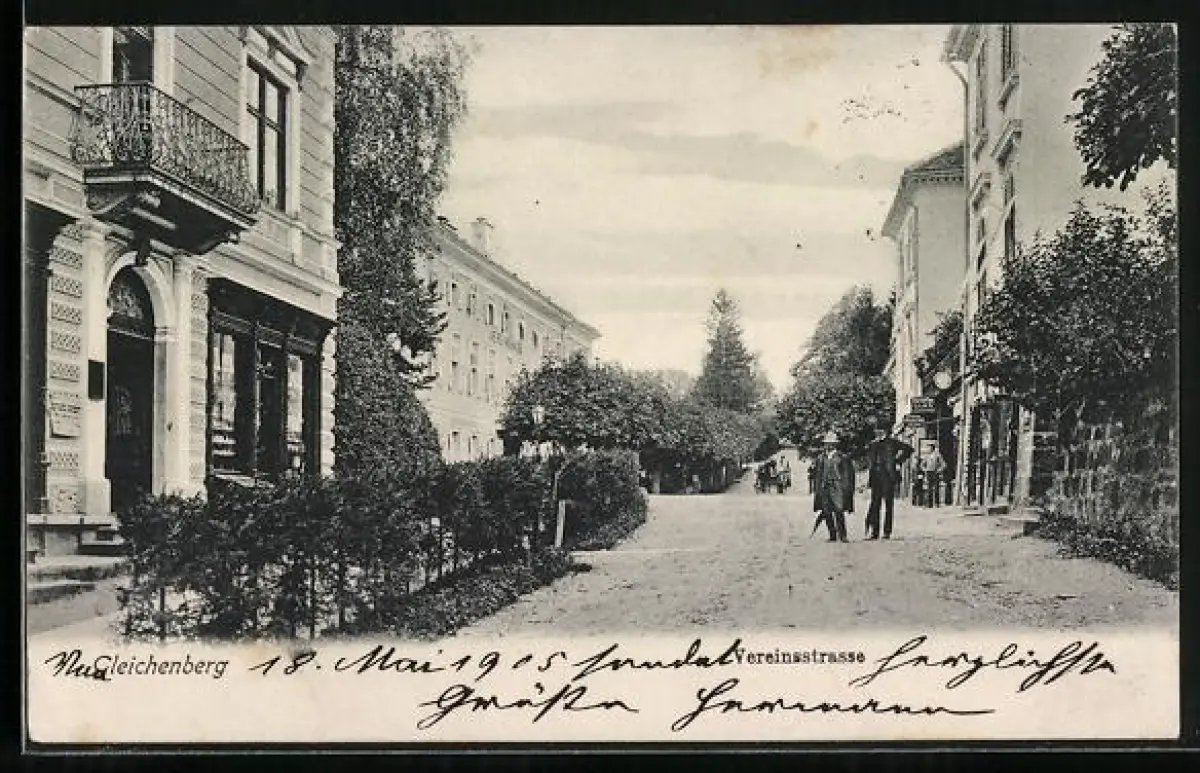 Gleichenberg 18. Mai 1905 sendet Vereinsstrasse herzlichste
Grüße Hermann